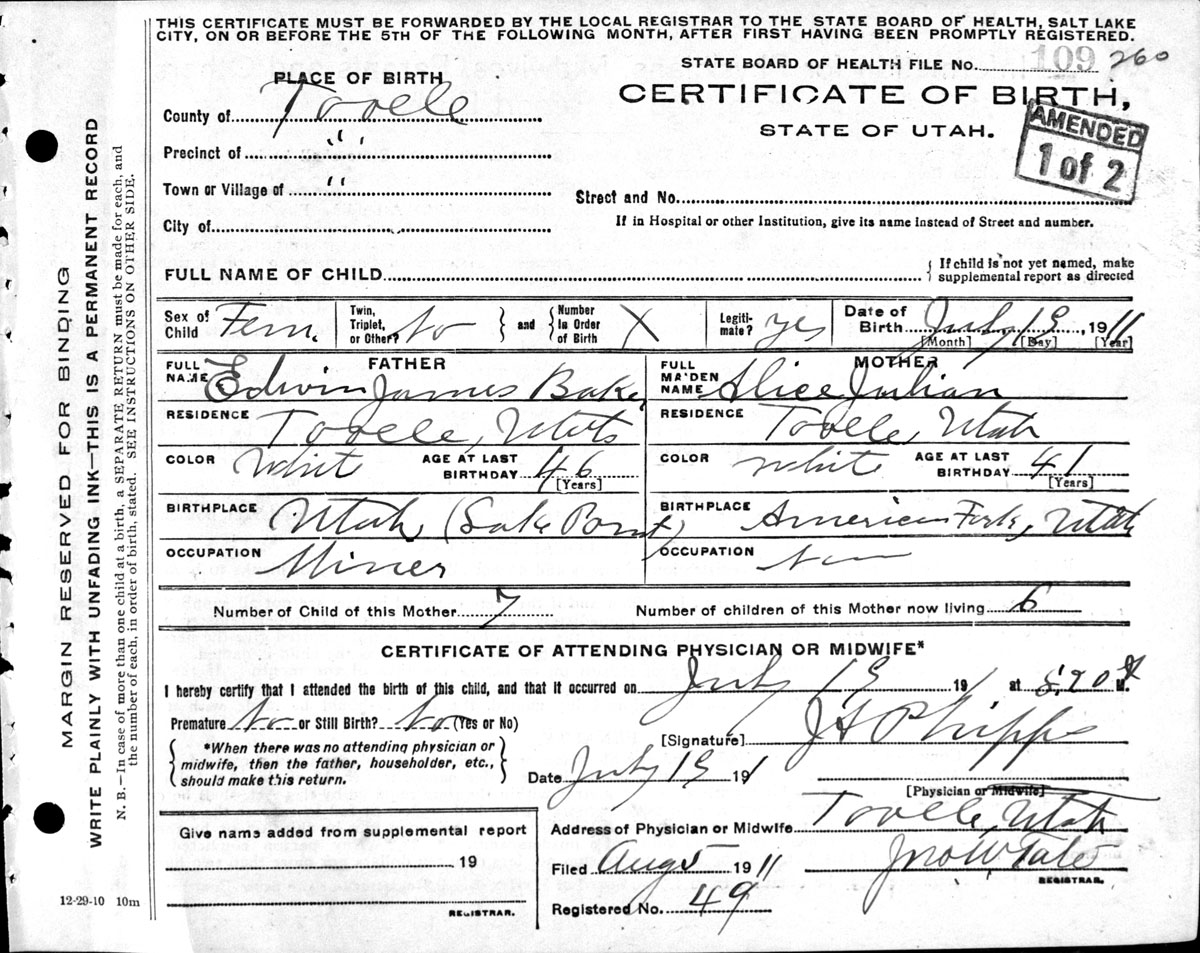 THIS CERTIFICATE MUST BE FORWARDED BY THE LOCAL REGISTRAR TO THE STATE BOARD OF HEALTH, SALT LAKE
CITY, ON OR BEFORE THE 5TH OF THE FOLLOWING MONTH, AFTER FIRST HAVING BEEN PROMPTLY REGISTERED.
STATE BOARD OF HEALTH FILE No. 109 260
PLACE OF BIRTH
CERTIFICATE OF BIRTH,
STATE OF UTAH.
AMENDED
1 of 2
County of Tooele
Precinct of " "
Town or Village of " "
Street and No.
If in Hospital or other Institution, give its name instead of Street and number.
City of
FULL NAME OF CHILD
If child is not yet named, make
supplemental report as directed
Sex of Child Fem. Twin, Triplet, or Other? No and Number in Order of Birth X Legitimate? yes Date of Birth July 19, 1911
[Month] [Day] [Year]
FATHER MOTHER
FULL NAME Edwin James Bake FULL MAIDEN NAME Alice Julian
RESIDENCE Tooele, Utah RESIDENCE Tooele, Utah
COLOR White AGE AT LAST BIRTHDAY 46 [Years] COLOR White AGE AT LAST BIRTHDAY 41 [Years]
BIRTHPLACE Utah (Lake Point) BIRTHPLACE American Fork, Utah
OCCUPATION Miner OCCUPATION
Number of Child of this Mother 7 Number of children of this Mother now living 6
CERTIFICATE OF ATTENDING PHYSICIAN OR MIDWIFE*
I hereby certify that I attended the birth of this child, and that it occurred on July 19 191 at M.
Premature? No or Still Birth? No (Yes or No)
[Signature] J H Phipps
*When there was no attending physician or
midwife, then the father, householder, etc.,
should make this return.
Date July 19 191
[Physician or Midwife]
Give name added from supplemental report
19
REGISTRAR.
Address of Physician or Midwife Tooele, Utah
Filed Aug 5 1911
REGISTRAR.
Registered No. 49
12-29-10 10m
MARGIN RESERVED FOR BINDING
WRITE PLAINLY WITH UNFADING INK—THIS IS A PERMANENT RECORD
N. B.—In case of more than one child at a birth, a SEPARATE RETURN must be made for each, and
the number of each, in order of birth, stated. SEE INSTRUCTIONS ON OTHER SIDE.